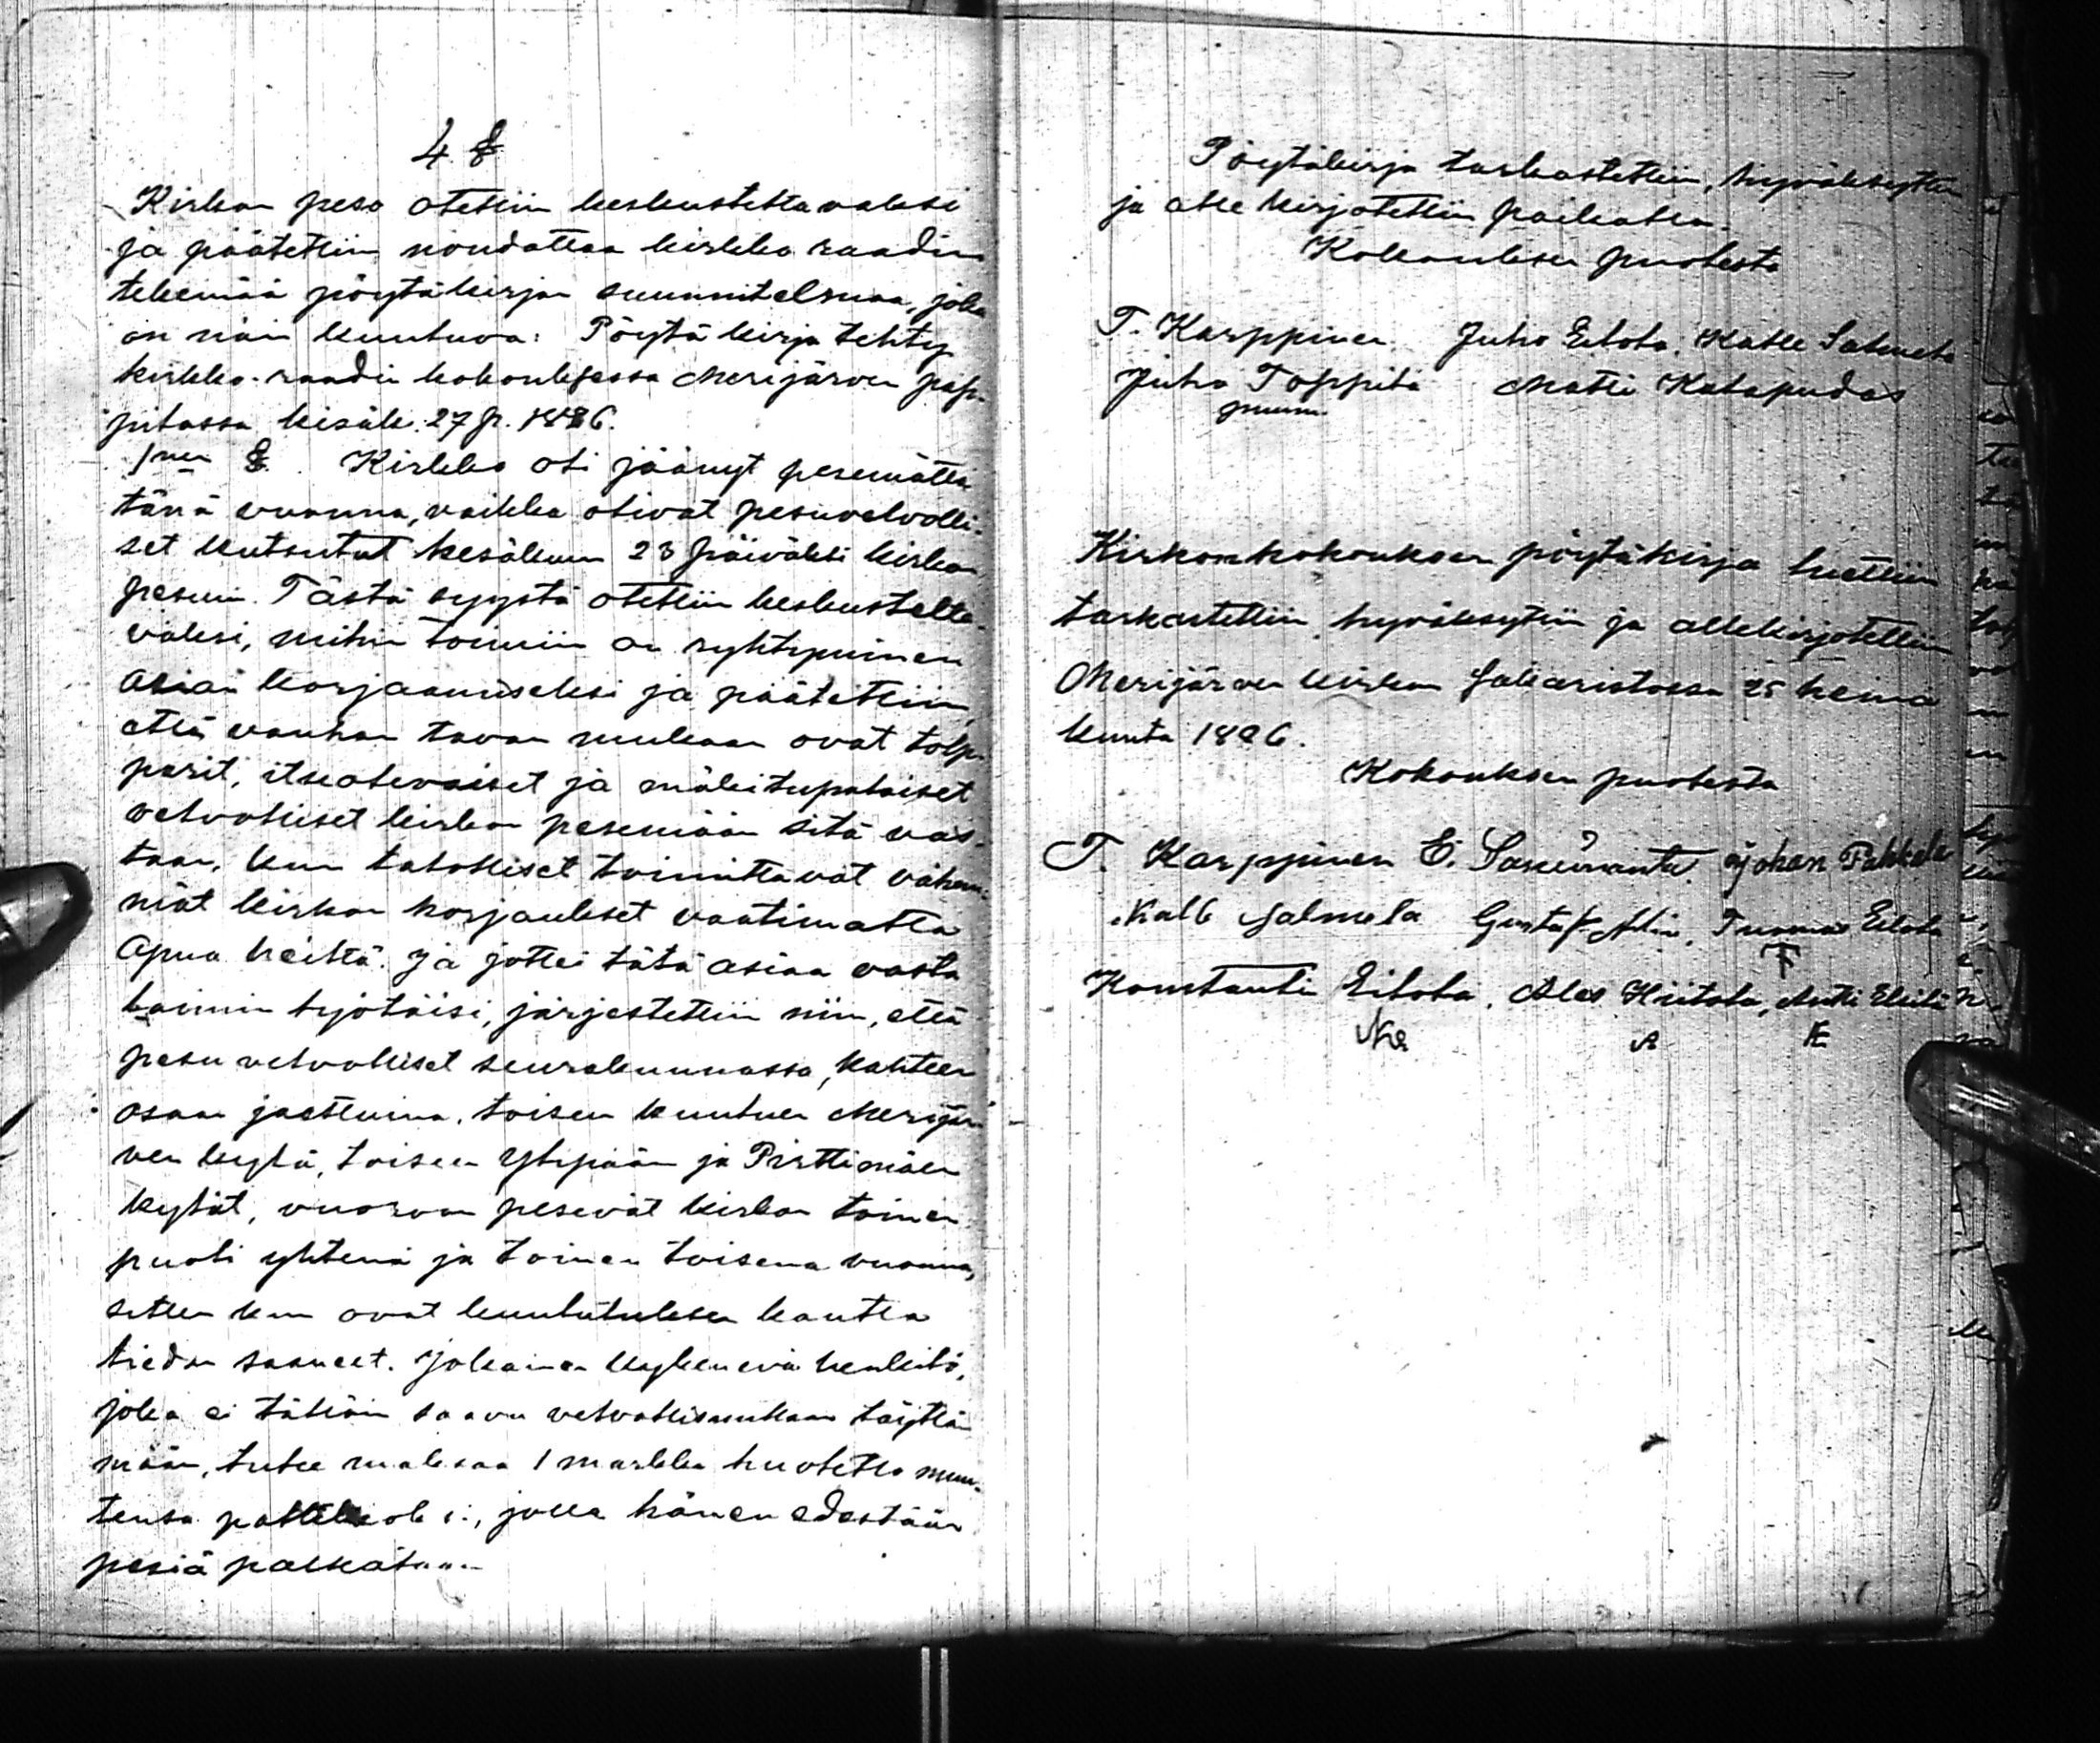 4 §
Kirkon peso otettiin keskusteltavaksi
ja päätettiin noudattaa kirkko raadin
tekemää pöytäkirjan suunnitelmaa, joka
on näin kuuluva: Pöytäkirja tehty
kirkko-raadin kokouksessa Merijärven pap-
pilassa kesäk: 27 p. 1886.
1nen §. Kirkko oli jäänyt pesemättä
tänä vuonna, vaikka olivat pesuvelvolli-
set kutsutut kesäkuun 23 päiväksi kirkon
pesuun. Tästä syystä otettiin keskustelta-
vaksi, mihin toimiin on ryhtyminen
asian korjaamiseksi ja päätettiin,
että vanhan tavan mukaan ovat tolp-
parit, itselevaiset ja mäkitupalaiset
velvolliset kirkon pesemään sitä vas-
taan, kun talolliset toimittavat vähem-
mät kirkon korjaukset vaatimatta
apua heiltä. Ja jottei tätä asiaa vasta
laimin lyötäisi, järjestettiin niin, että
pesu velvolliset seurakunnassa, kahteen
osaan jaettuina, toisen kuuluen Merijär-
ven kylä, toiseen Ylipään ja Pirttimäen
kylät, vuoroon pesevät kirkon toinen
puoli yhtenä ja toinen toisena vuonna,
sitten kun ovat kuulutuksen kautta
tiedon saaneet. Jokainen kykenevä henkilö,
joka ei tällöin saavu velvollisuuttaan täyttä-
mään, tulee maksaa 1 markka huoletta muu-
tensa, jolla hänen edestään
pesiä palkataan
Pöytäkirja tarkastettiin, hyväksyttiin
ja alle kirjotettiin paikalla.
Kokouksen puolesta
T. Karppinen Juho Eilola. Kalle Salmela
Juho Toppila Matti Katapudas
puum.
Kirkonkokouksen pöytäkirja luettiin
tarkastettiin hyväksytiin ja allekirjotettiin
Merijärven kirkon Sakaristossa 25 heinä
kuuta 1886.
Kokouksen puolesta
T. Karppinen E. Johan Pakkala
Kalle Salmela Gustaf Alin, Tuomas Eilola
T
Konstanti Eilola, Aleks Hiitola, Antti
A Æ